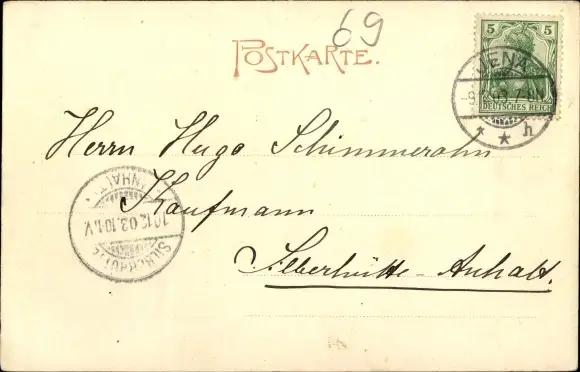 69
POSTKARTE.
5 5
DEUTSCHES REICH
JENA
03. 7-8N
* h
Herrn Hugo Schimmerohn
Kaufmann
Silberhütte-Anhalt.
SILBERHÜTTE
10.12.03.10-11V.
(ANHALT)